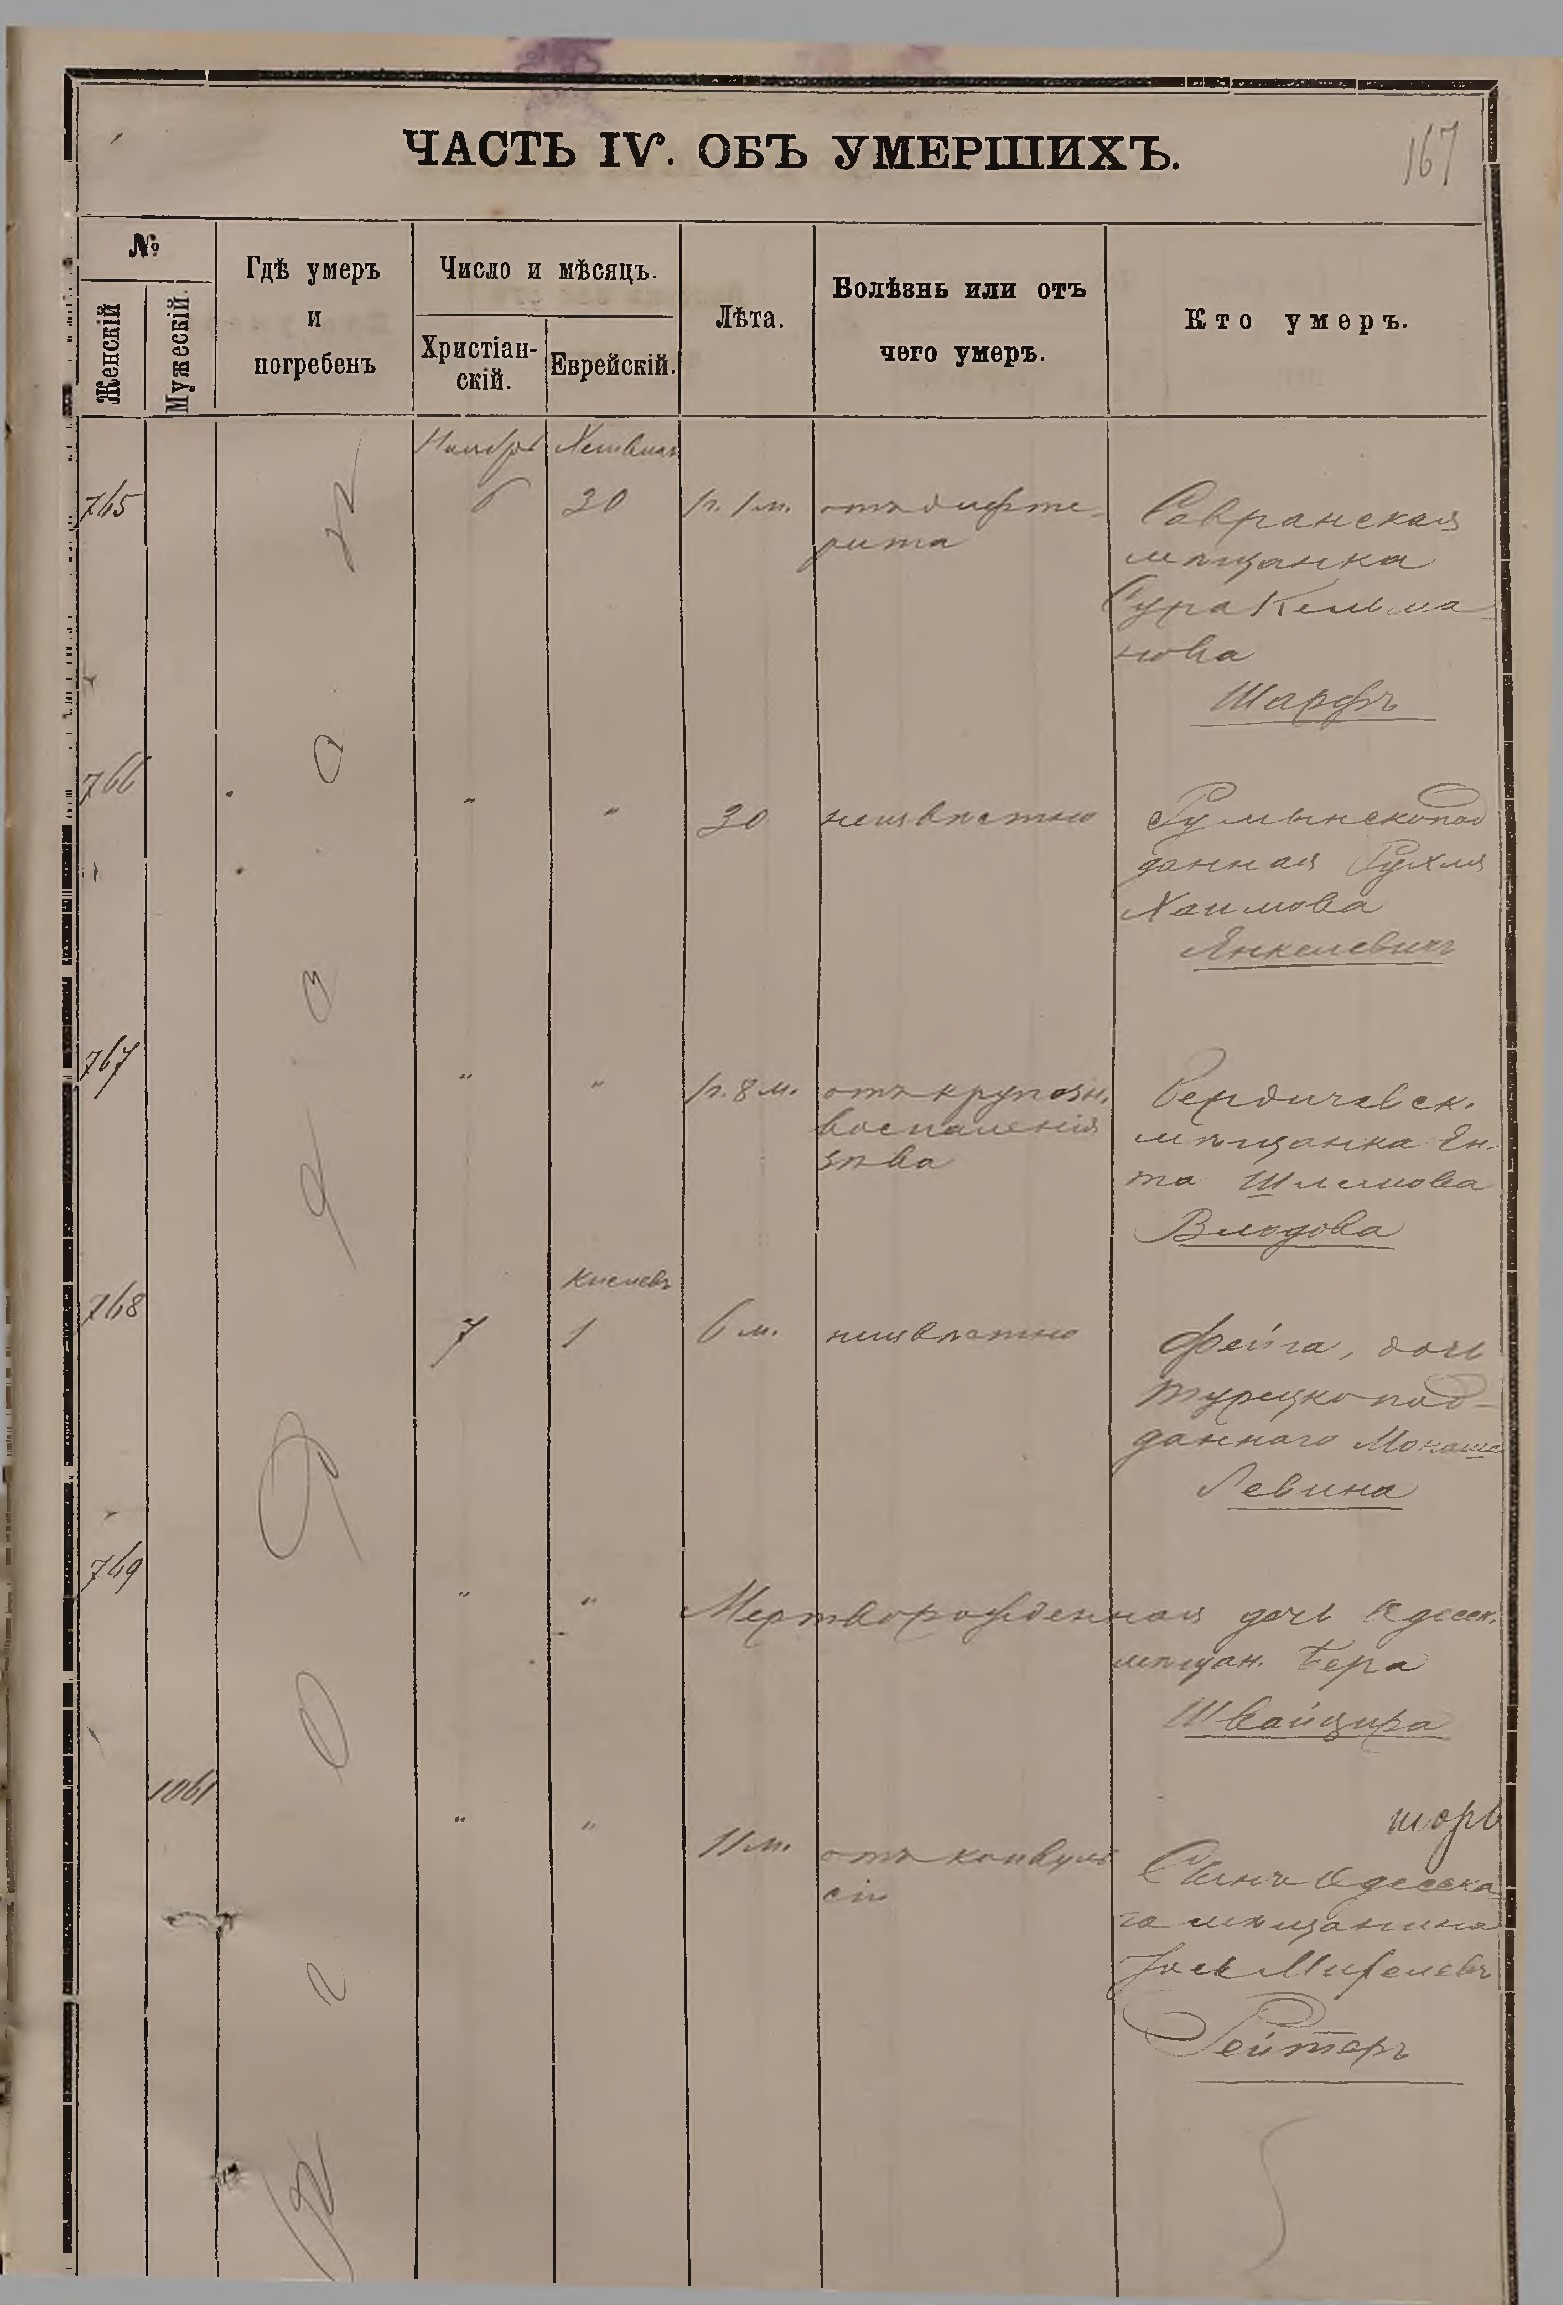 167
ЧАСТЬ IV. ОБЪ УМЕРШИХЪ.
№
Женскій
Мужескій.
Гдѣ умеръ
и
погребенъ
Число и мѣсяцъ.
Христіан-
скій.
Еврейскій.
Лѣта.
Болѣзнь или отъ
чего умеръ.
Кто умеръ.
Ноябрь Хешванъ
765 6 30 1г. 1м. отъ дифте-
рита
Савранская
мѣщанка
Сура Кельма
нова
Шарфъ
766 " " 30 неизвѣстно
Румынскопод
данная Рухля
Хаимова
Янкелевичъ
767 " " 1г. 8м. отъ крупозн.
воспаленія
зѣва
Бердичевск.
мѣщанка Ен-
та Шлемова
Влодова
Кислевъ
768 7 1 6 м. неизвѣстно
Фейга, дочь
турецкопод-
даннаго
Левина
769 " " Мертворожденная дочь Одесск.
мѣщан. Бера
Швайцира
1061 " " 11 м. отъ конвуль
сіи
Сынъ Одесска
го мѣщанина
Рейтеръ